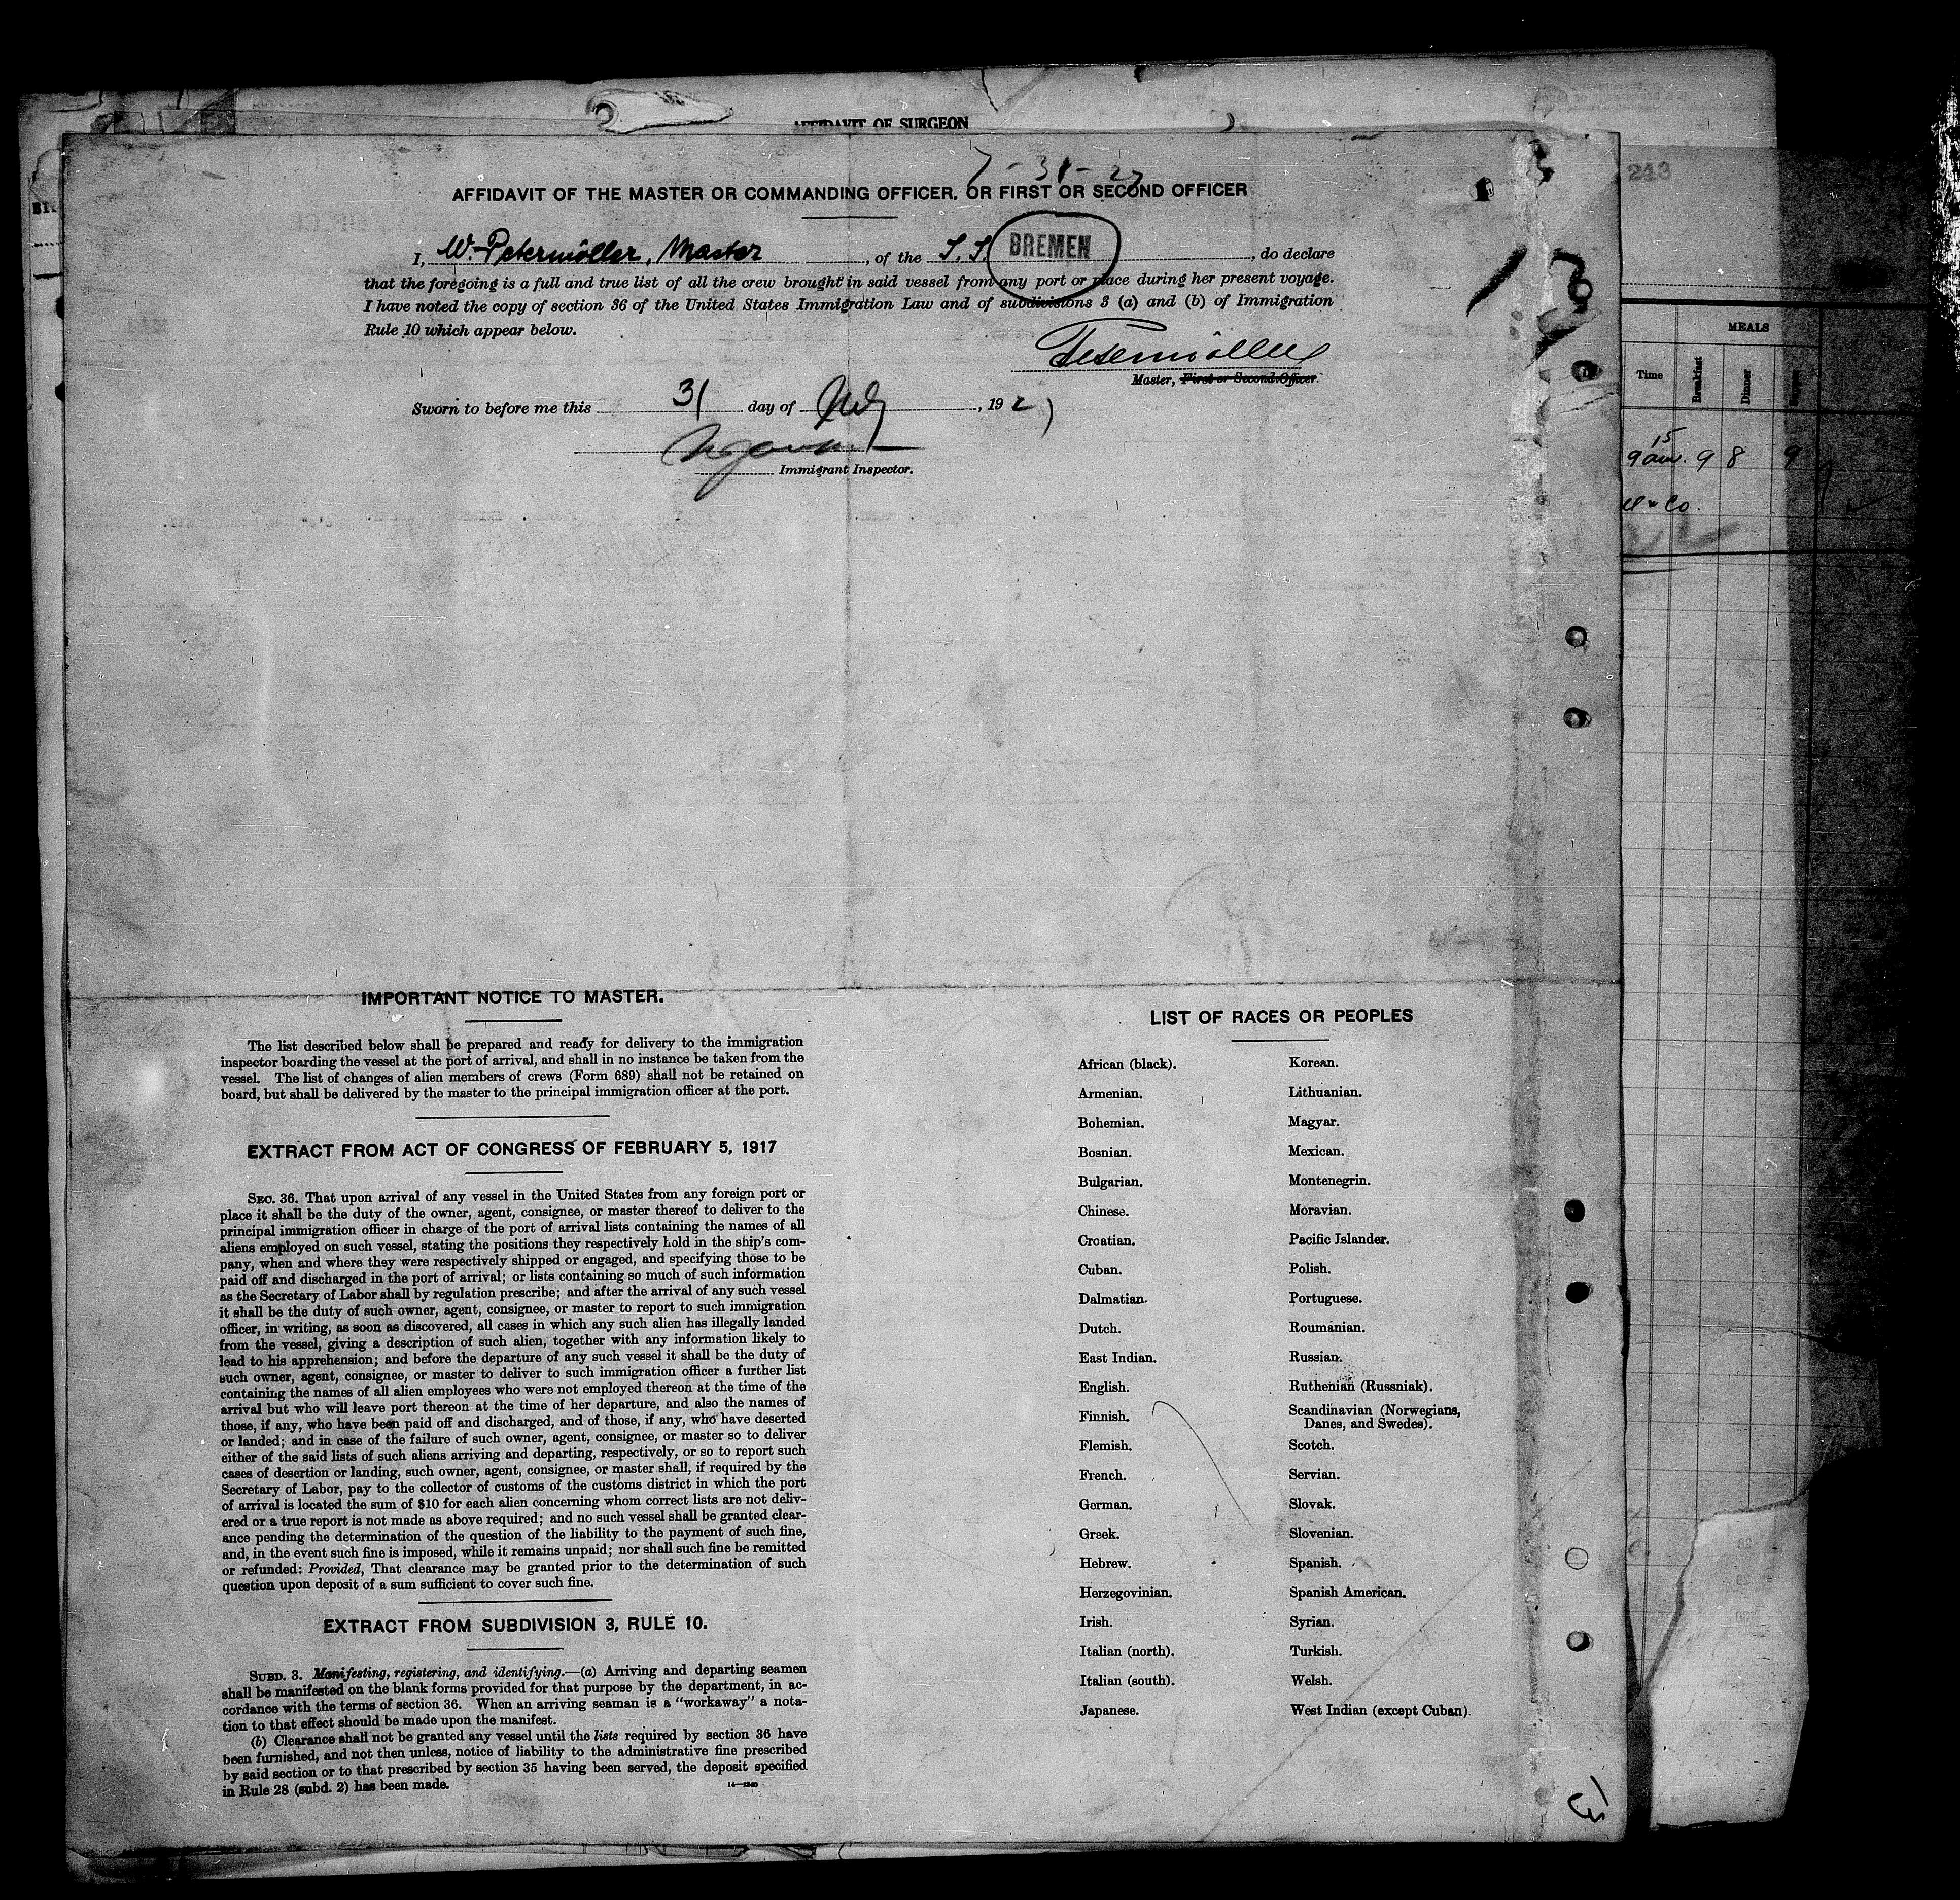 AFFIDAVIT OF SURGEON
7-31-27
AFFIDAVIT OF THE MASTER OR COMMANDING OFFICER, OR FIRST OR SECOND OFFICER
I, W. Petermöller, Master, of the S.S. BREMEN, do declare
that the foregoing is a full and true list of all the crew brought in said vessel from any port or place during her present voyage.
I have noted the copy of section 36 of the United States Immigration Law and of subdivisions 3 (a) and (b) of Immigration
Rule 10 which appear below.
Petermöller
Master, First or Second Officer.
Sworn to before me this 31 day of July, 1927
Immigrant Inspector.
13
243
MEALS
Time Breakfast Dinner Supper
9 15 am. 9 8 9
& Co.
IMPORTANT NOTICE TO MASTER.
The list described below shall be prepared and ready for delivery to the immigration
inspector boarding the vessel at the port of arrival, and shall in no instance be taken from the
vessel. The list of changes of alien members of crews (Form 689) shall not be retained on
board, but shall be delivered by the master to the principal immigration officer at the port.
EXTRACT FROM ACT OF CONGRESS OF FEBRUARY 5, 1917
SEC. 36. That upon arrival of any vessel in the United States from any foreign port or
place it shall be the duty of the owner, agent, consignee, or master thereof to deliver to the
principal immigration officer in charge of the port of arrival lists containing the names of all
aliens employed on such vessel, stating the positions they respectively hold in the ship's com-
pany, when and where they were respectively shipped or engaged, and specifying those to be
paid off and discharged in the port of arrival; or lists containing so much of such information
as the Secretary of Labor shall by regulation prescribe; and after the arrival of any such vessel
it shall be the duty of such owner, agent, consignee, or master to report to such immigration
officer, in writing, as soon as discovered, all cases in which any such alien has illegally landed
from the vessel, giving a description of such alien, together with any information likely to
lead to his apprehension; and before the departure of any such vessel it shall be the duty of
such owner, agent, consignee, or master to deliver to such immigration officer a further list
containing the names of all alien employees who were not employed thereon at the time of the
arrival but who will leave port thereon at the time of her departure, and also the names of
those, if any, who have been paid off and discharged, and of those, if any, who have deserted
or landed; and in case of the failure of such owner, agent, consignee, or master so to deliver
either of the said lists of such aliens arriving and departing, respectively, or so to report such
cases of desertion or landing, such owner, agent, consignee, or master shall, if required by the
Secretary of Labor, pay to the collector of customs of the customs district in which the port
of arrival is located the sum of $10 for each alien concerning whom correct lists are not deliv-
ered or a true report is not made as above required; and no such vessel shall be granted clear-
ance pending the determination of the question of the liability to the payment of such fine,
and, in the event such fine is imposed, while it remains unpaid; nor shall such fine be remitted
or refunded: Provided, That clearance may be granted prior to the determination of such
question upon deposit of a sum sufficient to cover such fine.
EXTRACT FROM SUBDIVISION 3, RULE 10.
SUBD. 3. Manifesting, registering, and identifying.—(a) Arriving and departing seamen
shall be manifested on the blank forms provided for that purpose by the department, in ac-
cordance with the terms of section 36. When an arriving seaman is a "workaway" a nota-
tion to that effect should be made upon the manifest.
(b) Clearance shall not be granted any vessel until the lists required by section 36 have
been furnished, and not then unless, notice of liability to the administrative fine prescribed
by said section or to that prescribed by section 35 having been served, the deposit specified
in Rule 28 (subd. 2) has been made.
14—1240
LIST OF RACES OR PEOPLES
African (black).
Armenian.
Bohemian.
Bosnian.
Bulgarian.
Chinese.
Croatian.
Cuban.
Dalmatian.
Dutch.
East Indian.
English.
Finnish.
Flemish.
French.
German.
Greek.
Hebrew.
Herzegovinian.
Irish.
Italian (north).
Italian (south).
Japanese.
Korean.
Lithuanian.
Magyar.
Mexican.
Montenegrin.
Moravian.
Pacific Islander.
Polish.
Portuguese.
Roumanian.
Russian.
Ruthenian (Russniak).
Scandinavian (Norwegians,
Danes, and Swedes).
Scotch.
Servian.
Slovak.
Slovenian.
Spanish.
Spanish American.
Syrian.
Turkish.
Welsh.
West Indian (except Cuban).
13